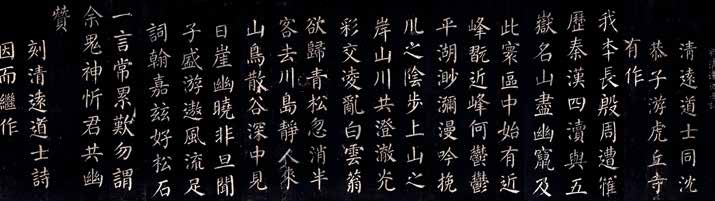 清遠道士同沈
恭子游虎丘寺
有作
我夲長殷周遭罹
歷秦漢四瀆與五
嶽名山盡幽竄及
此寰區中始有近
峰翫近峰何鬱鬱
平湖渺瀰漫吟挽
川之陰步上山之
岸山川共澄澈光
彩交凌亂白雲翁
欲歸青松忽消半
客去川島靜人來
山鳥散谷深中見
日崖幽曉非旦聞
子盛游遨風流足
詞翰嘉兹好松石
一言常累歎勿謂
余鬼神忻君共幽
贊
刻清遠道士詩
因而繼作